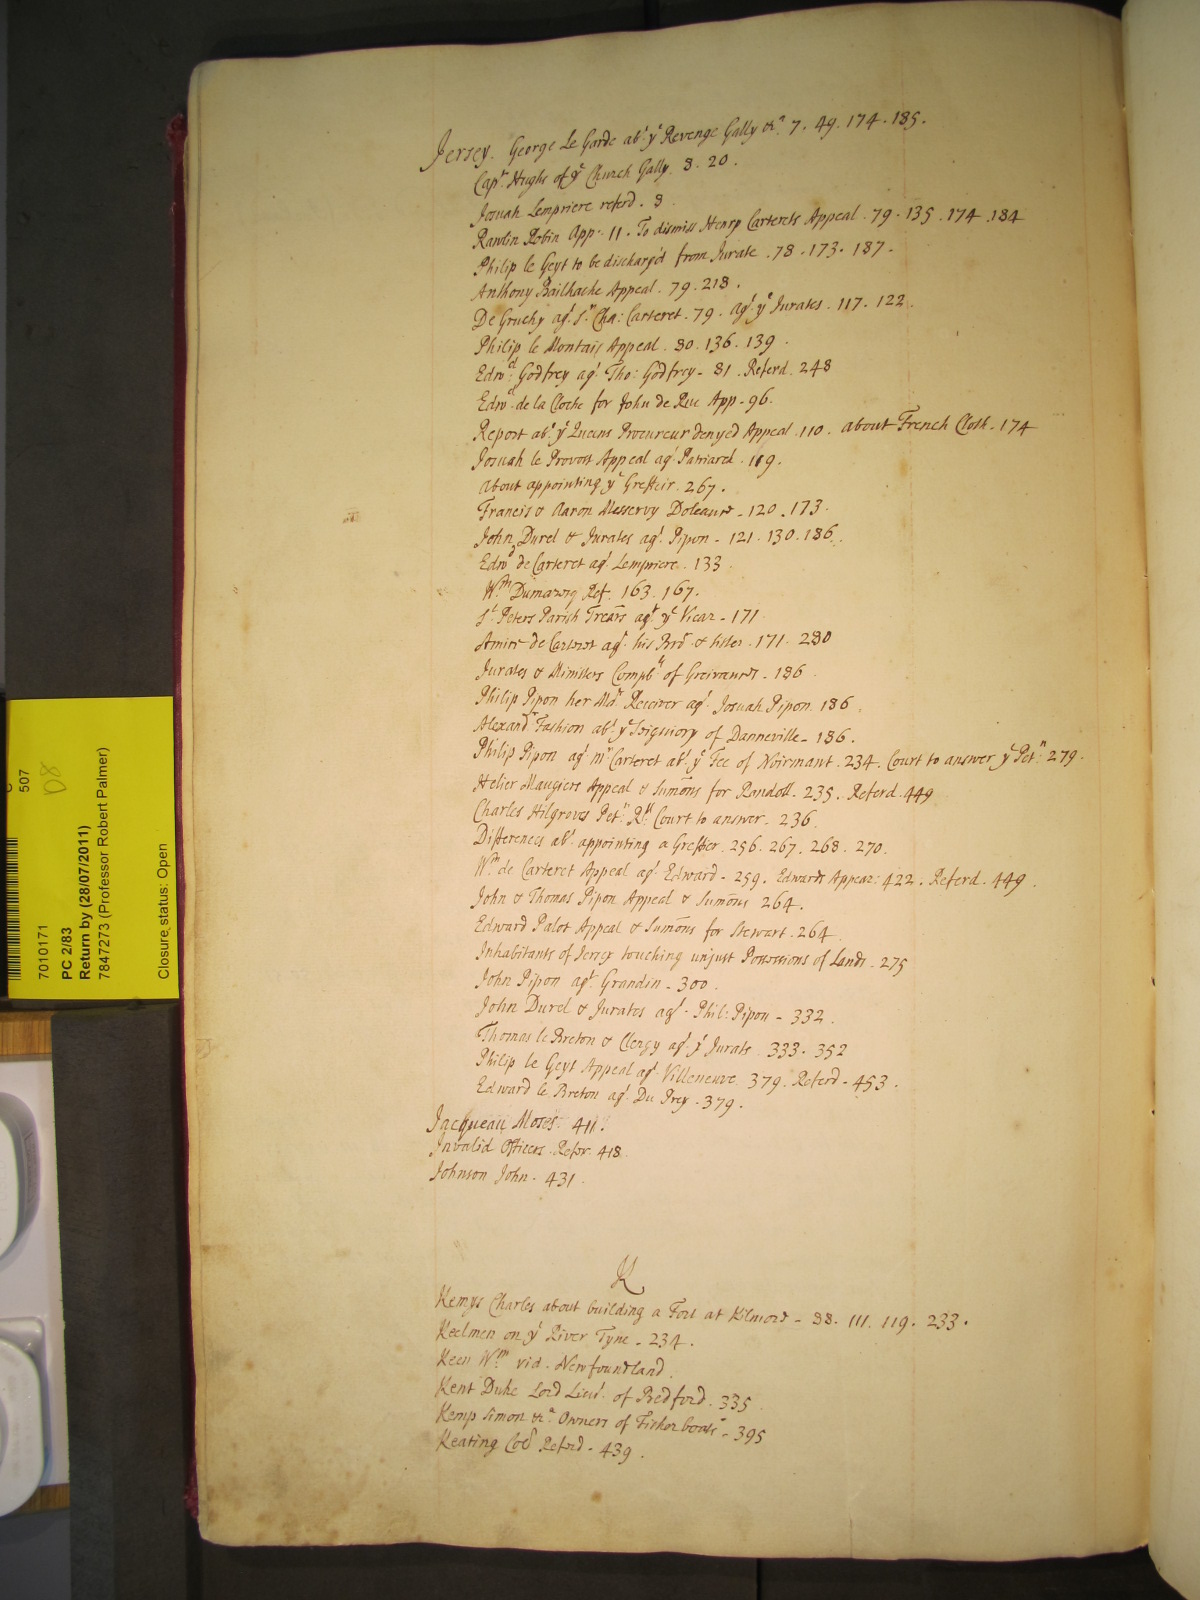 Jersey. George Le Garde abt ye Revenge Gally &ca 7. 49. 174. 185.
Capt Hughs of ye Church Gally. 8. 20.
Josuah Lempriere referd. 8.
Rawlin Robin App. 11. To dismiss Henry Carterets Appeal. 79. 135. 174. 184
Philip le Geyt to be discharg'd from Jurate. 78. 173. 187.
Anthony Bailhache Appeal. 79. 218.
De Gruchy agt Sr Cha: Carteret. 79. agt ye Jurates. 117. 122.
Philip le Montais Appeal. 80. 136. 139.
Edwd: Godfrey agt Tho: Godfrey. 81. Referd. 248
Edwd de la Cloche for John de Rue App. 96.
Report abt ye Queens Procureur denyed Appeal. 110. about French Cloth. 174
Josuah le Provost Appeal agt Patriarch. 119.
about appointing ye Greffeir. 267.
Francis & Aaron Messervy Doleance. 120. 173.
John Durel & Jurates agt Pipon. 121. 130. 186.
Edwd de Carteret agt Lempriere. 133
Wm Dumaresq Ref. 163. 167.
St Peters Parish Trears agt ye Vicar. 171
Amice de Carteret agt his Bror & sister. 171. 280
Jurates & Ministers Complt of Greivances. 186
Philip Pipon her Mats Receiver agt Josuah Pipon. 186.
Alexandr Fashion abt ye Seigniory of Danneville. 186.
Philip Pipon agt Mr Carteret abt ye Fee of Noirmant. 234. Court to answer ye Petn: 279.
Helier Maugiers Appeal & Sumons for Randoll. 235. Referd. 449
Charles Hilgroves Petn Rll Court to answer. 236.
Differences abt appointing a Greffier. 256. 267. 268. 270.
Wm de Carteret Appeal agt Edward. 259. Edwards Appeas: 422. Referd. 449.
John & Thomas Pipon Appeal & Sumons 264.
Edward Palot Appeal & Sumons for Stewart. 264
Inhabitants of Jersey touching unjust Possessions of Lands. 275
John Pipon agt Grandin. 300.
John Durel & Jurates agt Phil: Pipon. 332.
Thomas le Breton & Clergy agt ye Jurats. 333. 352
Philip le Geyt Appeal agt Villeneuve. 379. Referd. 453.
Edward le Breton agt Du Prey. 379.
Jacqueau Moses. 411.
Invalid Officers Refer. 418.
Johnson John. 431.
K
Kemys Charles about building a Fort at Kilmore. 88. 111. 119. 233.
Keelmen on ye River Tyne. 234.
Keen Wm vid. Newfoundland.
Kent Duke Lord Lieut. of Bedford. 335
Kemp Simon &ca Owners of Fisherboats. 395
Keating Cod Referd. 439.
507
D8
7010171
PC 2/83
Return by (28/07/2011)
7847273 (Professor Robert Palmer)
Closure status: Open